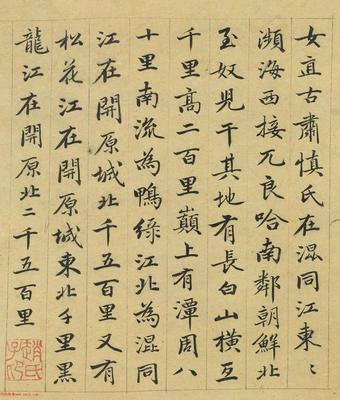 女直古肅慎氏在混同江東〻
瀕海西接兀良哈南鄰朝鮮北
至奴兒干其地有長白山橫亙
千里高二百里巔上有潭周八
十里南流為鴨綠江北為混同
江在開原城北千五百里又有
松花江在開原城東北千里黑
龍江在開原北二千五百里
趙氏子昂